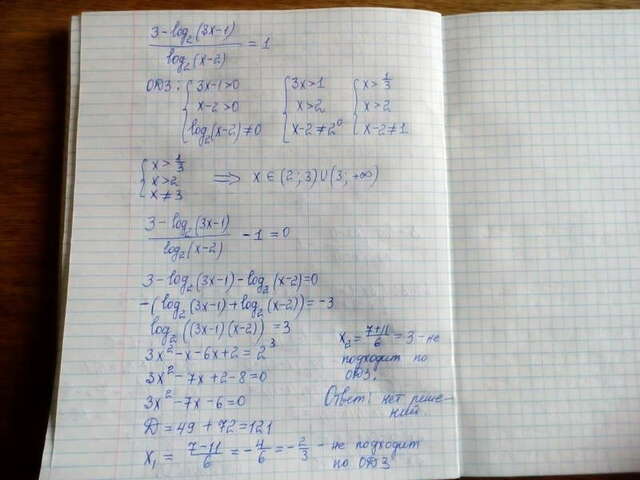 (3 - log₂(3x-1)) / log₂(x-2) = 1
ОДЗ: { 3x-1>0 { 3x>1 { x>1/3
x-2>0 x>2 x>2
log₂(x-2)≠0 x-2≠2⁰ x-2≠1
{ x>1/3
x>2 ⟹ x∈(2;3)∪(3;+∞)
x≠3
(3 - log₂(3x-1)) / log₂(x-2) - 1 = 0
3 - log₂(3x-1) - log₂(x-2) = 0
-(log₂(3x-1) + log₂(x-2)) = -3
log₂((3x-1)(x-2)) = 3
3x² - x - 6x + 2 = 2³
3x² - 7x + 2 - 8 = 0
3x² - 7x - 6 = 0
D = 49 + 72 = 121
x₁ = (7-11)/6 = -4/6 = -2/3 - не подходит
по ОДЗ
x₂ = (7+11)/6 = 3 - не
подходит по
ОДЗ.
Ответ: нет реше-
ний.